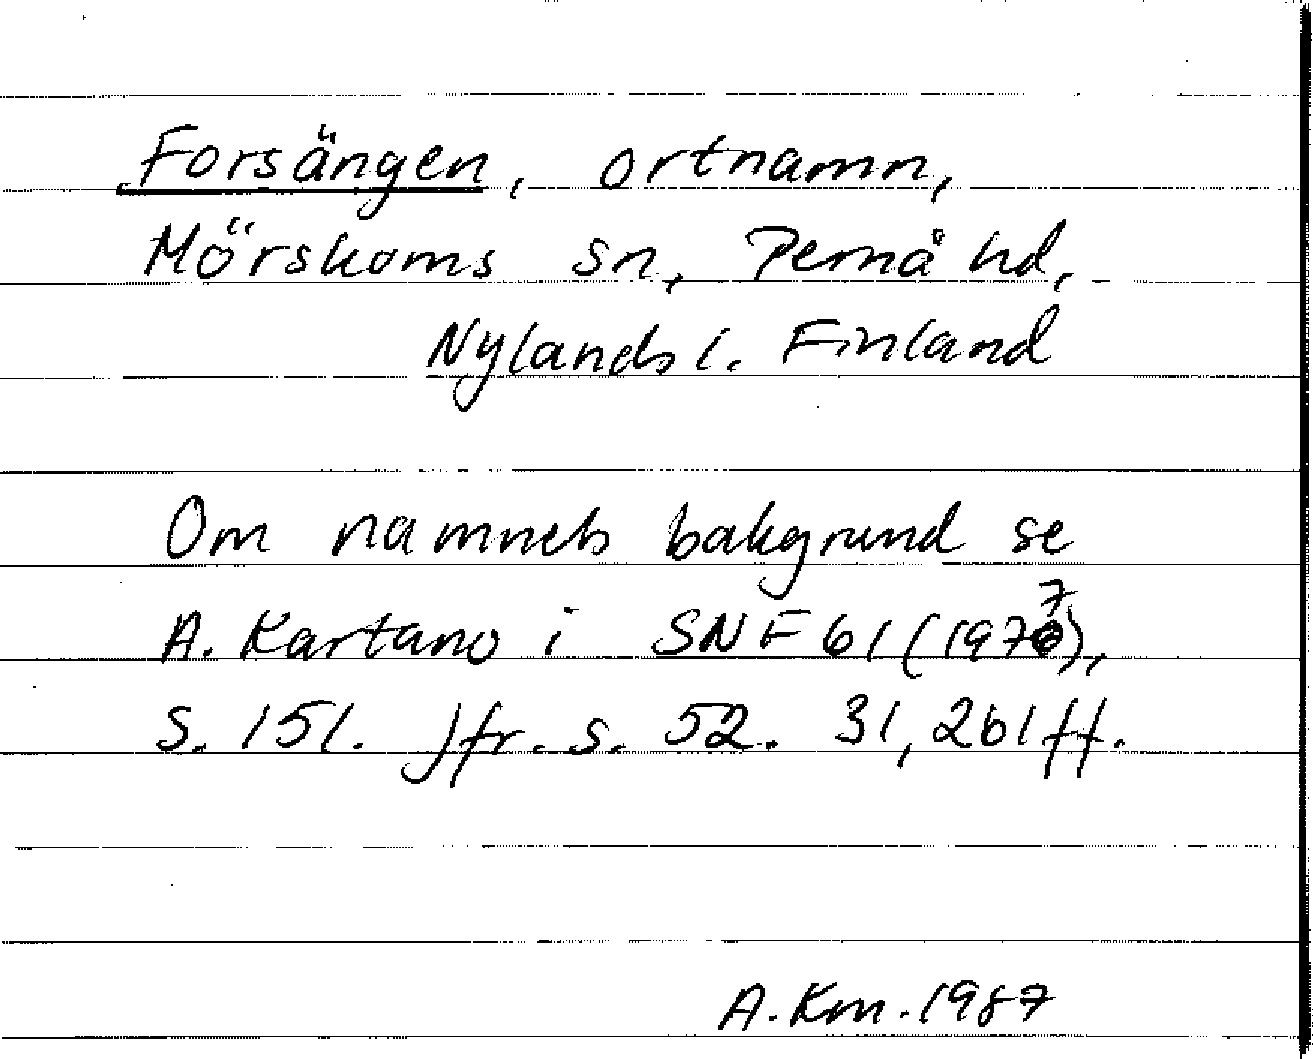 Forsängen, ortnamn,
Mörskoms sn, Pernå hd,
Nylands l. Finland
Om namnets bakgrund se
A. Kartano i SNF 61 (1977),
s. 151. Jfr. s. 52. 31, 261 ff.
A. Km. 1987